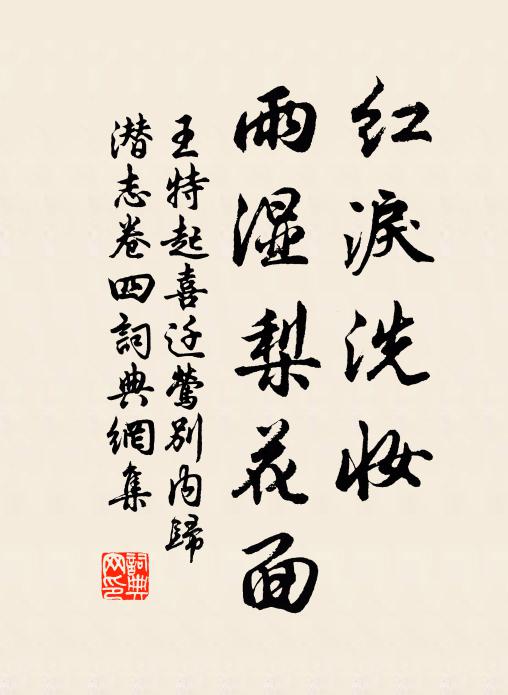 红淚洗妆
雨湿梨花面
王特起喜迁莺别内歸
潜志卷四詞典網集
詞典网印